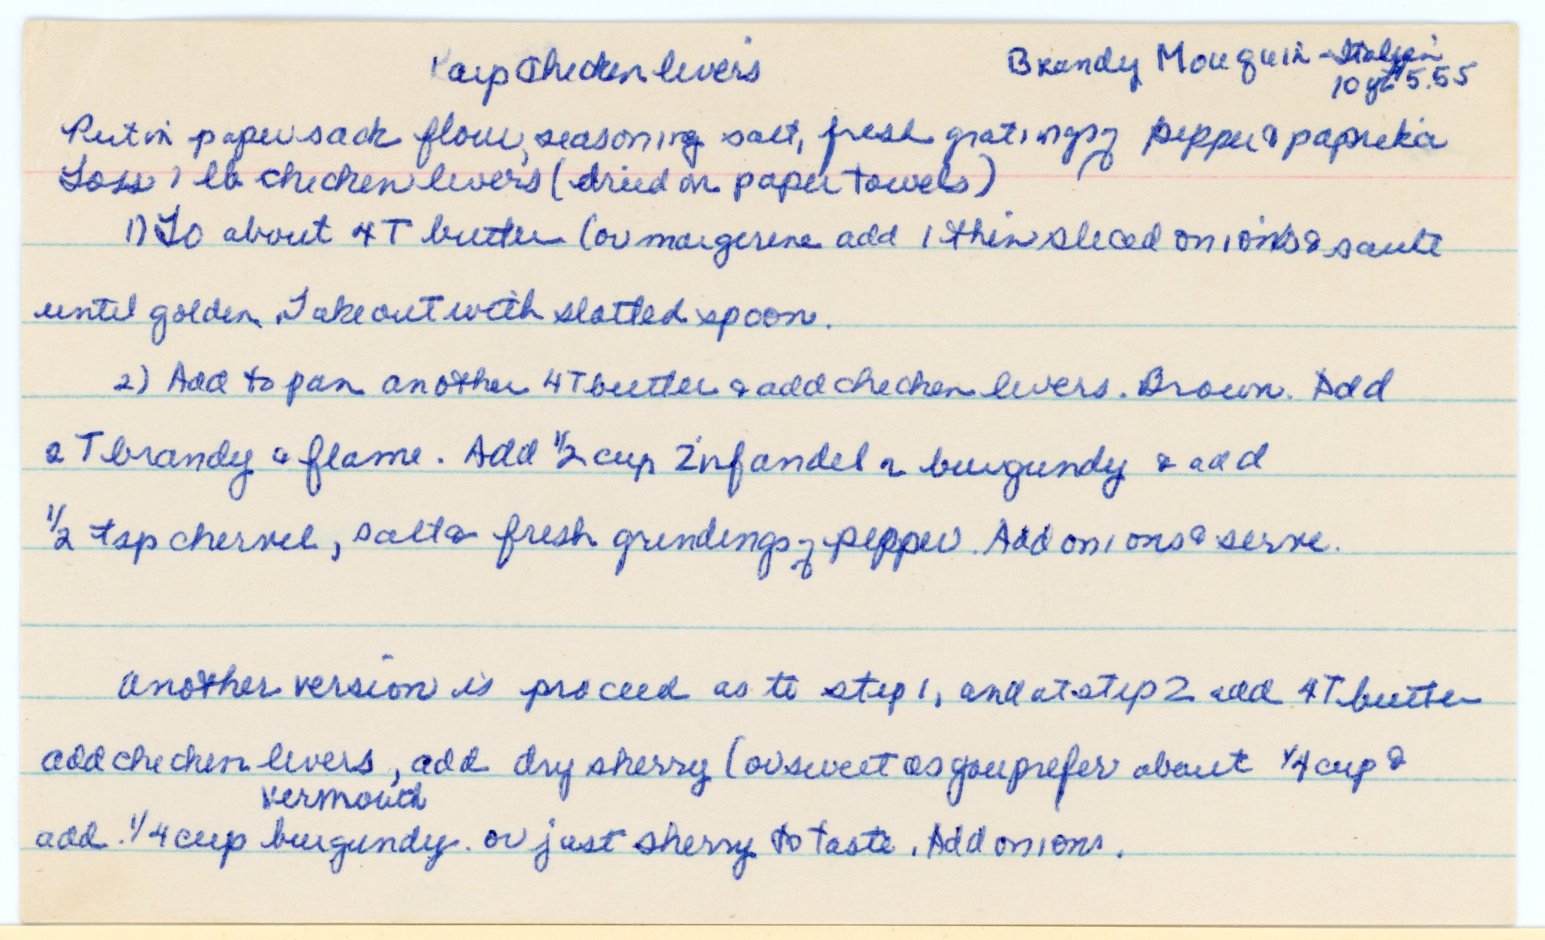 Chicken livers
Brandy Mouquin - Italian
10 yr $5.55
Put in paper sack flour, seasoning salt, fresh gratings of pepper & paprika
Toss 1 lb chicken livers (dried on paper towels)
1) To about 4 T butter (or margerine add 1 thin sliced onions & saute
until golden. Take out with slotted spoon.
2) Add to pan another 4T butter & add chicken livers. Brown. Add
2 T brandy & flame. Add 1/2 cup Zinfandel or burgundy & add
1/2 tsp chervil, salt & fresh grindings of pepper. Add onions & serve.
Another version is proceed as to step 1, and at step 2 add 4T butter
add chicken livers, add dry sherry (or sweet as you prefer about 1/4 cup &
vermouth
add 1/4 cup burgundy. or just sherry to taste. Add onions.